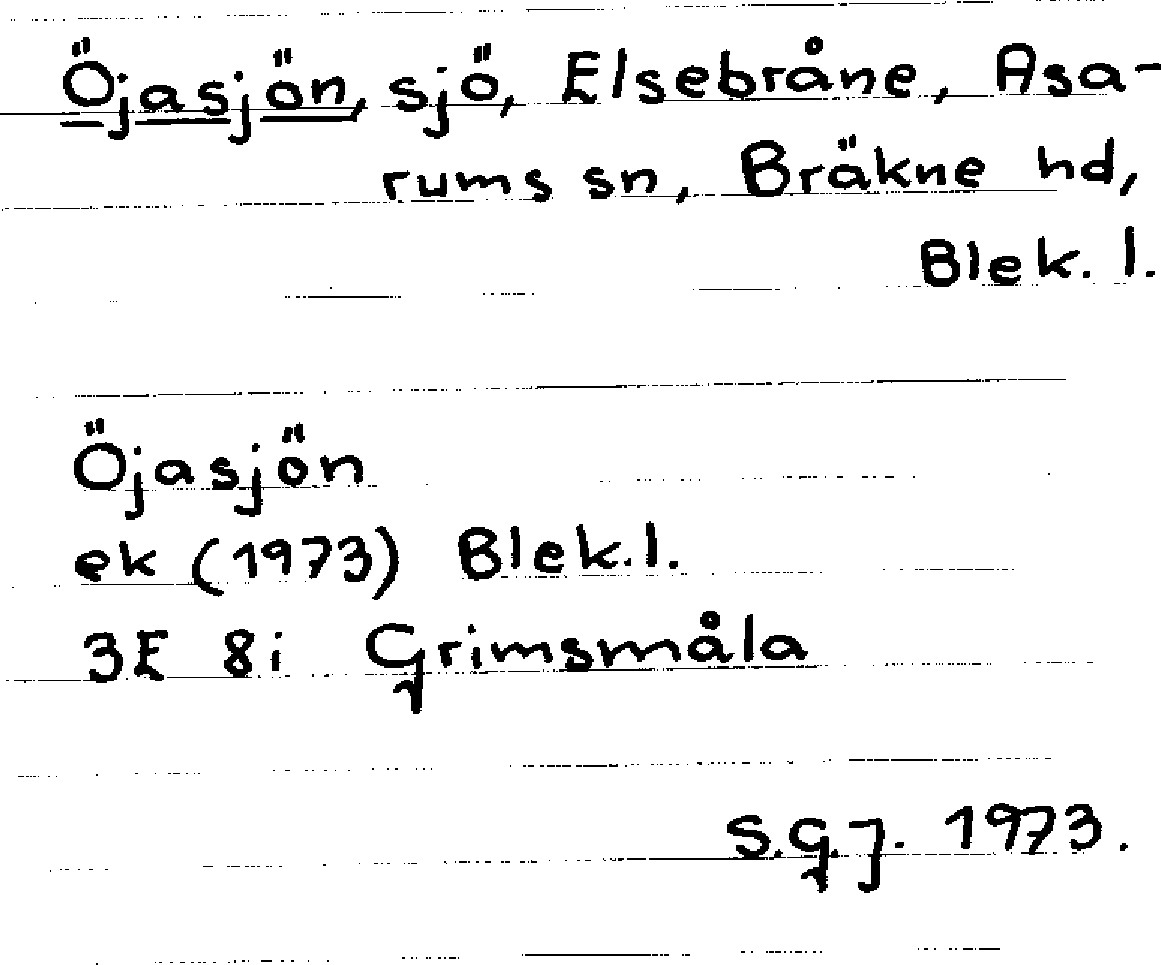 Öjasjön, sjö, Elsebråne, Asa-
rums sn, Bräkne hd,
Blek. l.
Öjasjön
ek (1973) Blek.l.
3E 8i Grimsmåla
S.G.J. 1973.